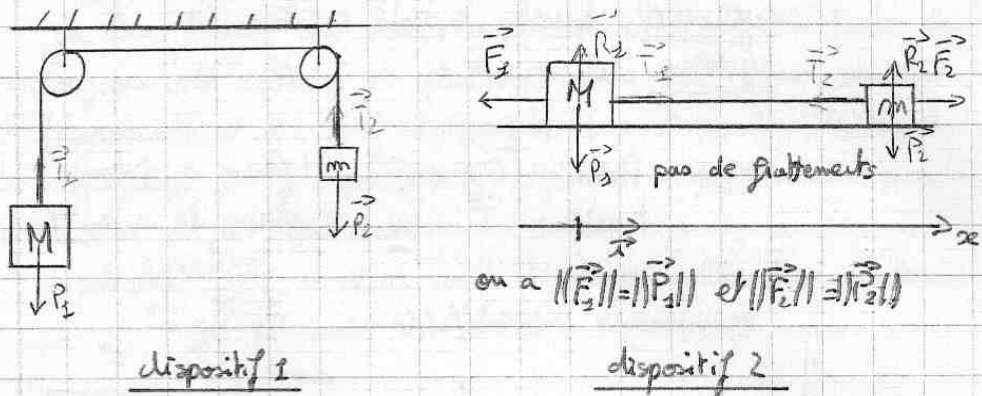 T⃗1
T⃗2
M
m
P⃗1
P⃗2
dispositif 1
F⃗1
R⃗1
T⃗1
T⃗2
R⃗2
F⃗2
M
m
P⃗1
P⃗2
pas de frottements
i⃗
x
on a ||F⃗1|| = ||P⃗1|| et ||F⃗2|| = ||P⃗2||
dispositif 2